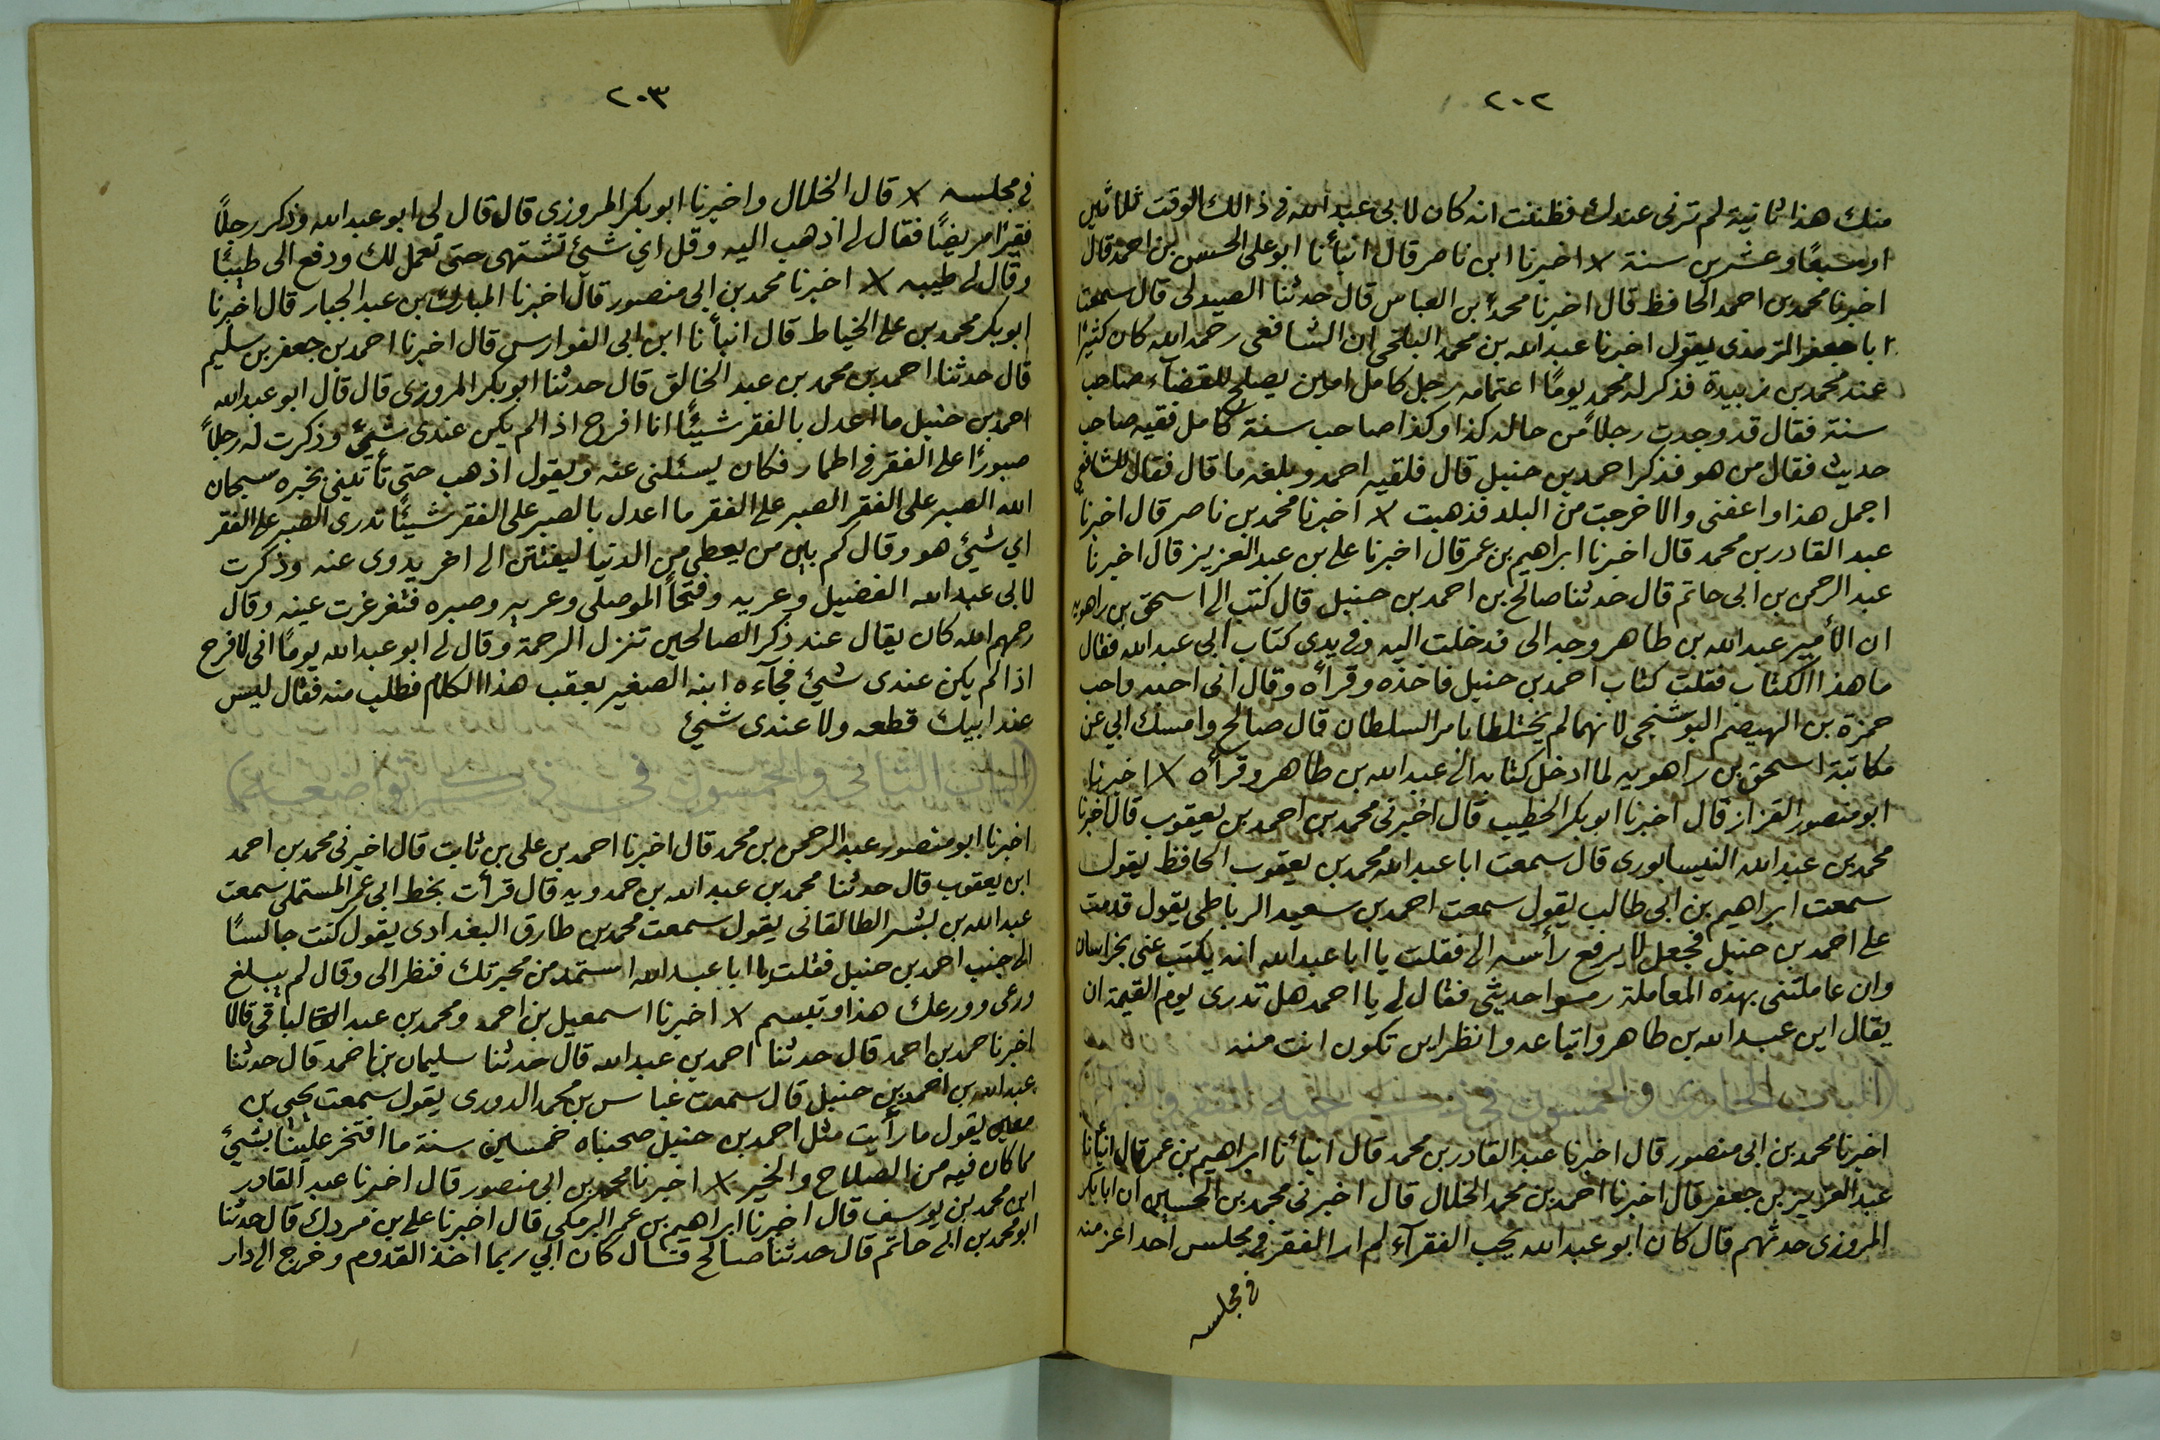 ٢٠٢
منك هذا ثانية لم ترنى عندك فظننت انه كان لابى عبد الله فى ذالك الوقت ثلاثين
او سبعًا وعشرين سنة ✕ اخبرنا ابن ناصر قال انبأنا ابو على الحسن بن احمد قال
اخبرنا محمد بن احمد الحافظ قال اخبرنا محمد بن العباس قال حدثنا الصيدلى قال سمعت
ابا جعفر الترمذى يقول اخبرنا عبد الله بن محمد البلخى ان الشافعى رحمه الله كان كثيرًا
عند محمد بن زبيدة فذكر له محمد يومًا اغتمامه برجل كامل امين يصلح للقضاء صاحب
سنة فقال قد وجدت رجلاً من حاله كذا وكذا صاحب سنة كامل فقيه صاحب
حديث فقال من هو فذكر احمد بن حنبل قال فلقيه احمد وبلغه ما قال فقال للشافعى
اجمل هذا واعفنى والا خرجت من البلد فذهبت ✕ اخبرنا محمد بن ناصر قال اخبرنا
عبد القادر بن محمد قال اخبرنا ابراهيم بن عمر قال اخبرنا على بن عبد العزيز قال اخبرنا
عبد الرحمن بن ابى حاتم قال حدثنا صالح بن احمد بن حنبل قال كتب الى اسحق بن راهويه
ان الأمير عبد الله بن طاهر وجه الى فدخلت اليه وفى يدى كتاب ابى عبد الله فقال
ما هذا الكتاب فقلت كتاب احمد بن حنبل فاخذه وقرأه وقال انى احبه واحب
حمزة بن الهيصم البوشنجى لانهما لم يختلطا بامر السلطان قال صالح وامسك ابي عن
مكاتبة اسحق بن راهويه لما ادخل كتابه الى عبد الله بن طاهر وقرأه ✕ اخبرنا
ابو منصور القزاز قال اخبرنا ابو بكر الخطيب قال اخبرنى محمد بن احمد بن يعقوب قال اخبرنا
محمد بن عبد الله النيسابورى قال سمعت ابا عبد الله محمد بن يعقوب الحافظ يقول
سمعت ابراهيم بن ابى طالب يقول سمعت احمد بن سعيد الرباطى يقول قدمت
على احمد بن حنبل فجعل لا يرفع رأسه الى فقلت يا ابا عبد الله انه يكتب عنى بخراسان
وان عاملتنى بهذه المعاملة رموا حديثى فقال لى يا احمد هل تدرى يوم القيمة ان
يقال اين عبد الله بن طاهر واتباعه وانظر اين تكون انت منه
(الباب الحادى والخمسون فى ذكر حبه للفقر والفقراء)
اخبرنا محمد بن ابى منصور قال اخبرنا عبد القادر بن محمد قال انبأنا ابراهيم بن عمر قال انبأنا
عبد العزيز بن جعفر قال اخبرنا احمد بن محمد الخلال قال اخبرنى محمد بن الحسين ان ابا بكر
المروزى حدثهم قال كان ابو عبد الله يحب الفقرآء لم ار الفقر فى مجلس احد اعز منه
فى مجلسه
٢٠٣
فى مجلسه ✕ قال الخلال واخبرنا ابو بكر المروزى قال قال لى ابو عبد الله وذكر رجلًا
فقيرًا مريضًا فقال لى اذهب اليه وقل اي شئ تشتهى حتى نعمل لك ودفع الى طيبًا
وقال لى طيبه ✕ اخبرنا محمد بن ابى منصور قال اخبرنا المبارك بن عبد الجبار قال اخبرنا
ابو بكر محمد بن على الخياط قال انبأنا ابن ابى الفوارس قال اخبرنا احمد بن جعفر بن سليم
قال حدثنا احمد بن محمد بن عبد الخالق قال حدثنا ابو بكر المروزى قال قال ابو عبد الله
احمد بن حنبل ما اعدل بالفقر شيئًا انا افرح اذا لم يكن عندى شئ وذكرت له رجلاً
صبورًا على الفقر فى اطمار فكان يسئلنى عنه ويقول اذهب حتى تأتينى بخبره سبحان
الله الصبر على الفقر الصبر على الفقر ما اعدل بالصبر على الفقر شيئًا تدرى الصبر على الفقر
اي شئ هو وقال كم بين من يعطى من الدنيا ليفتتن الى اخر يدوى عنه وذكرت
لابى عبد الله الفضيل وعريه وفتحًا الموصلى وعريه وصبره فتغرغرت عينه وقال
رحمهم الله كان يقال عند ذكر الصالحين تنزل الرحمة وقال لى ابو عبد الله يومًا انى لا فرح
اذا لم يكن عندى شئ فجآءه ابنه الصغير بعقب هذا الكلام فطلب منه فقال ليس
عند ابيك قطعه ولا عندى شئ
(الباب الثانى والخمسون فى ذكر تواضعه)
اخبرنا ابو منصور عبد الرحمن بن محمد قال اخبرنا احمد بن على بن ثابت قال اخبرنى محمد بن احمد
ابن يعقوب قال حدثنا محمد بن عبد الله بن حمدويه قال قرأت بخط ابى عمر المستملى سمعت
عبد الله بن بشر الطالقانى يقول سمعت محمد بن طارق البغدادى يقول كنت جالسًا
الى جنب احمد بن حنبل فقلت يا ابا عبد الله استمد من محبرتك فنظر الى وقال لم يبلغ
ورعى وورعك هذا وتبسم ✕ اخبرنا اسمعيل بن احمد ومحمد بن عبد الباقى قالا
اخبرنا حمد بن احمد قال حدثنا احمد بن عبد الله قال حدثنا سليمان بن احمد قال حدثنا
عبد الله بن احمد بن حنبل قال سمعت عباس بن محمد الدورى يقول سمعت يحيى بن
معين يقول ما رأيت مثل احمد بن حنبل صحبناه خمسين سنة ما افتخر علينا بشئ
مما كان فيه من الصلاح والخير ✕ اخبرنا محمد بن ابى منصور قال اخبرنا عبد القادر
ابن محمد بن يوسف قال اخبرنا ابراهيم بن عمر البرمكى قال اخبرنا على بن مردك قال حدثنا
ابو محمد بن ابى حاتم قال حدثنا صالح قال كان ابي ربما اخذ القدوم وخرج الى دار